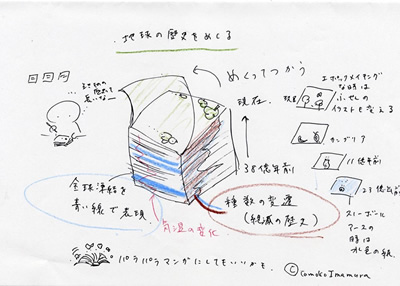 地球の歴史をめくる
めくってつかう
現在.
38億年前
エポックメイキング
な時は
ふせんの
イラストを変える
現在
カンブリア
11億年前
23億年前
スノーボール
アースの
時は
水色の紙.
地球の
歴史て
長いなー
全球凍結を
青い線で表現.
気温の変化
種数の変遷
(絶滅の歴史)
パラパラマンガにしてもいいかも.
©Tomoko Imamura